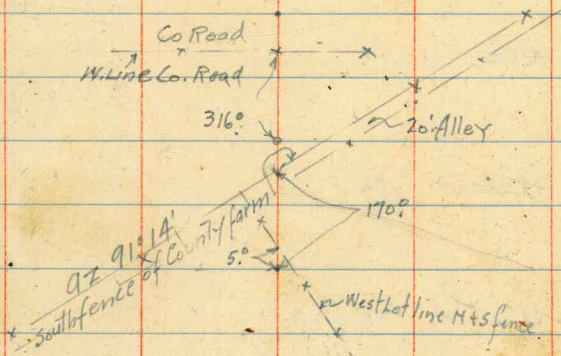 Co Road
W. Line Co. Road
316°
20' Alley
170°
az 91° 14'
South fence of County farm
5°
West Lot line N+S fence